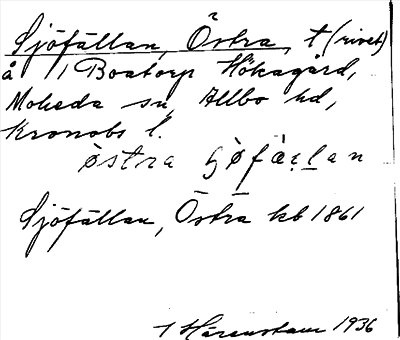 Sjöfällan, Östra, t (rivet)
å 1 Boatorp Hökagård,
Moheda sn, Allbo hd,
Kronobs l.
östra ɧøfälan
Sjöfällan, Östra kb 1861
T Härenstam 1936